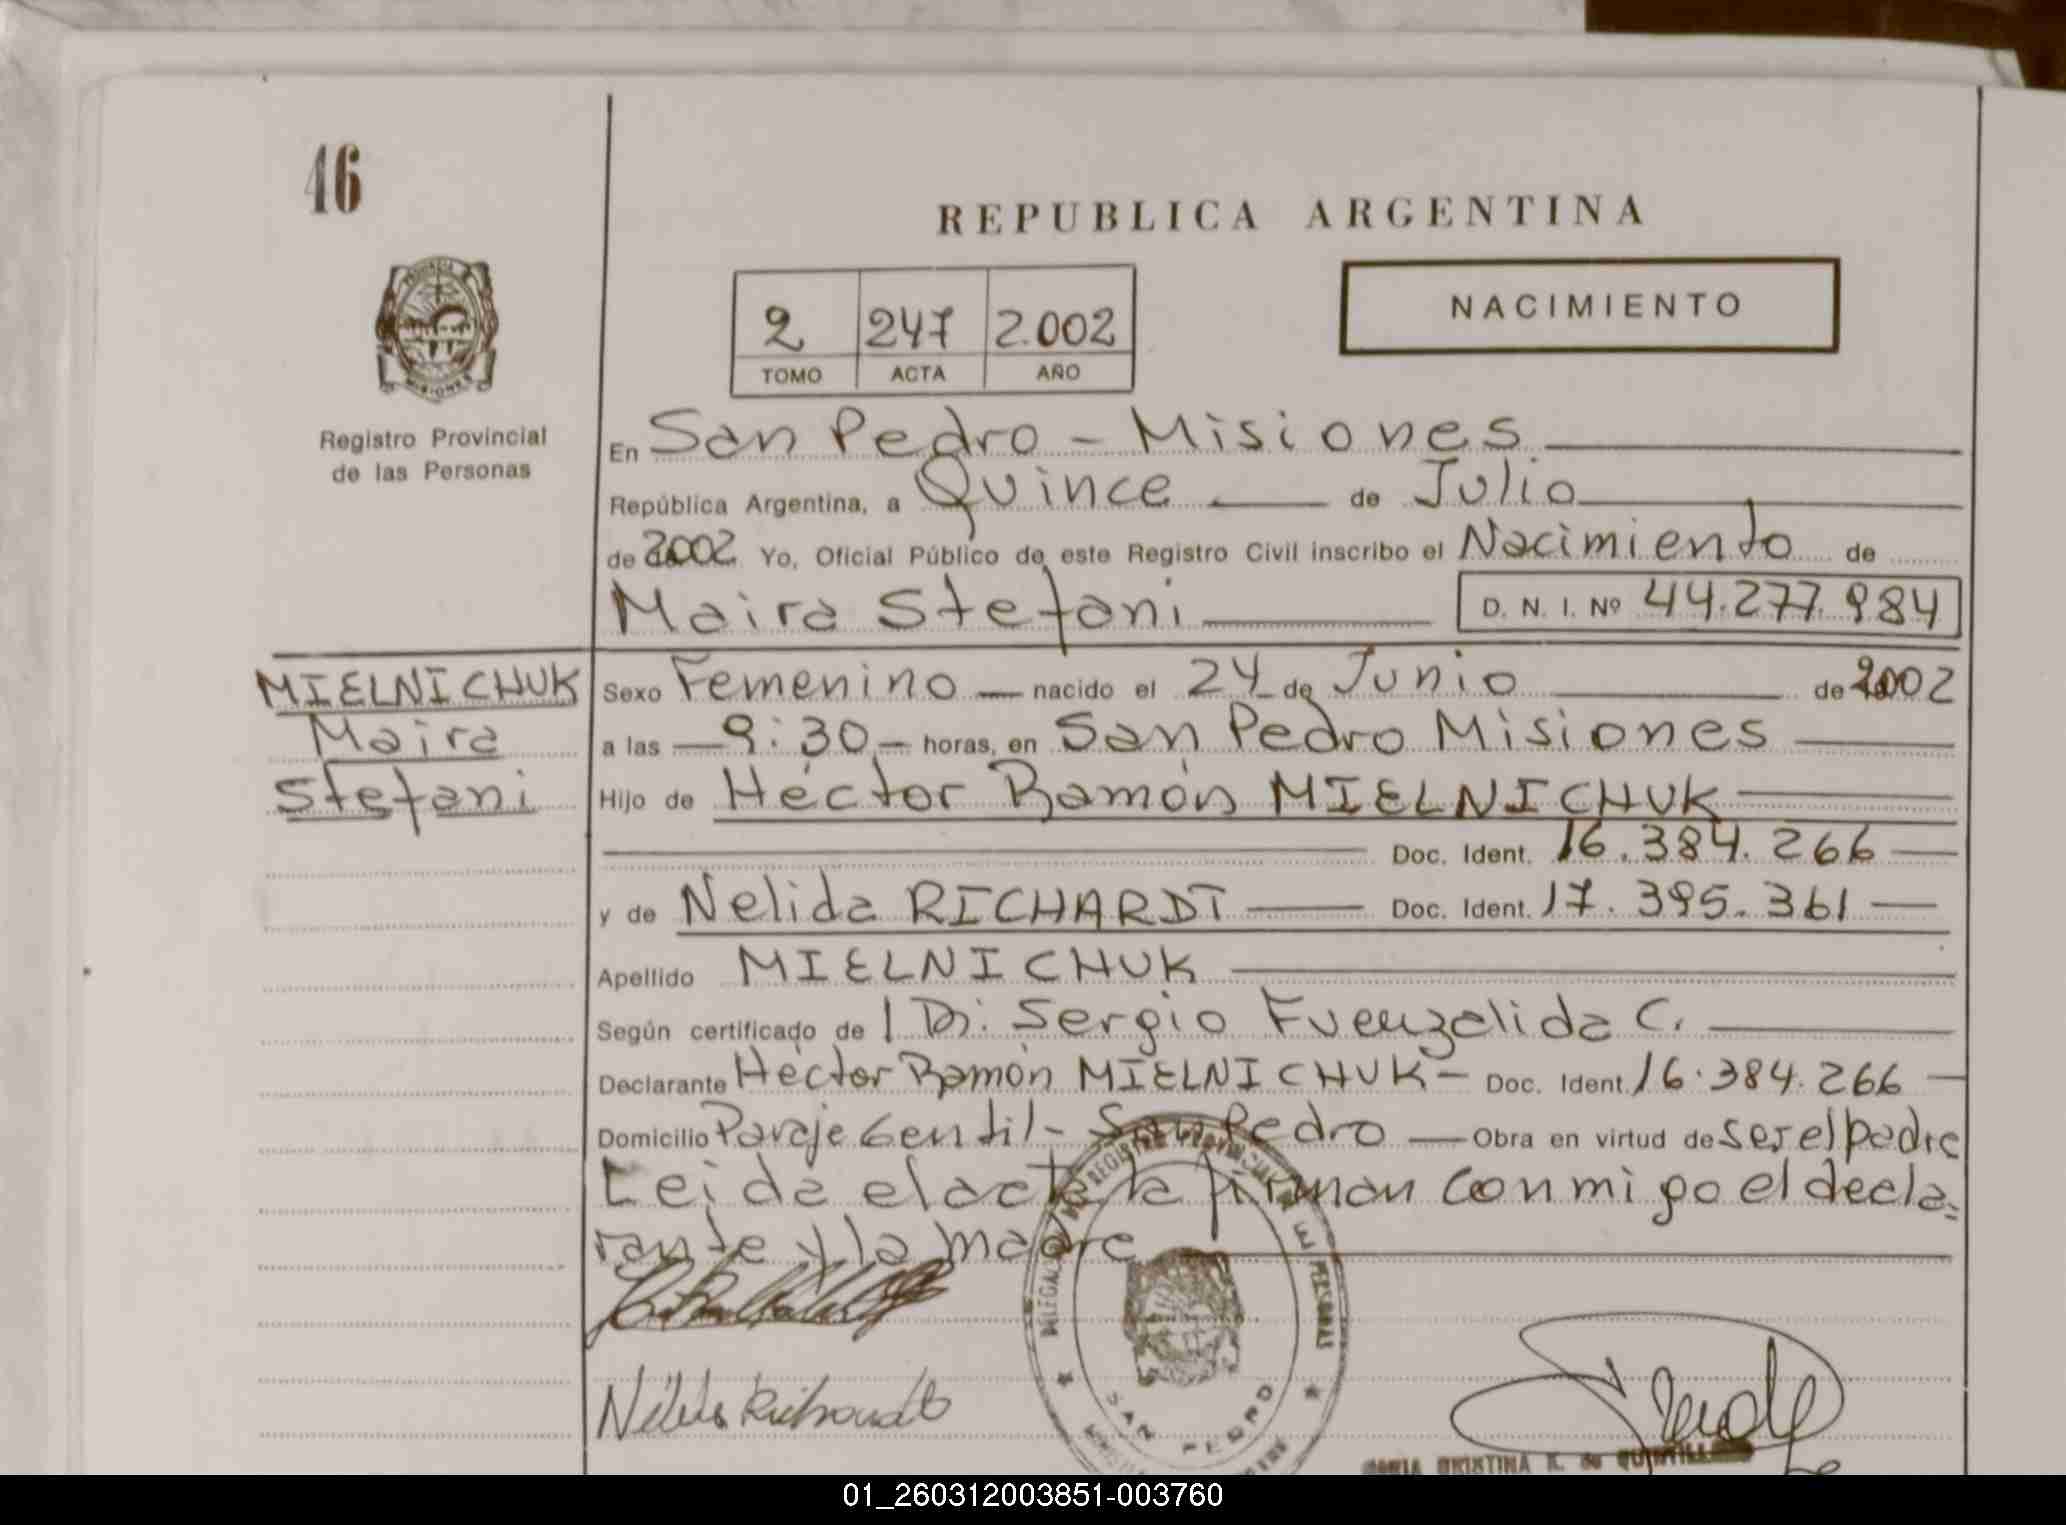 46
REPUBLICA ARGENTINA
NACIMIENTO
2 247 2.002
TOMO ACTA AÑO
Registro Provincial
de las Personas
En San Pedro - Misiones
República Argentina, a Quince de Julio
de 2002 Yo, Oficial Público de este Registro Civil inscribo el Nacimiento de
Maira Stefani D. N. I. Nº 44.277.984
MIELNICHUK
Maira
Stefani
Sexo Femenino nacido el 24 de Junio de 2002
a las 9:30 horas, en San Pedro Misiones
Hijo de Héctor Ramón MIELNICHUK
Doc. Ident. 16.384.266
y de Nelida RICHARDT Doc. Ident. 17.395.361
Apellido MIELNICHUK
Según certificado de Dr. Sergio Fuenzalida C.
Declarante Héctor Ramón MIELNICHUK - Doc. Ident. 16.384.266
Domicilio Paraje Gentil - San Pedro Obra en virtud de ser el padre
Leida el acta la firman conmigo el decla-
rante y la madre
DELEGACION REGISTRO PROVINCIAL DE PERSONAS
SAN PEDRO
CRISTINA K. de
01_260312003851-003760